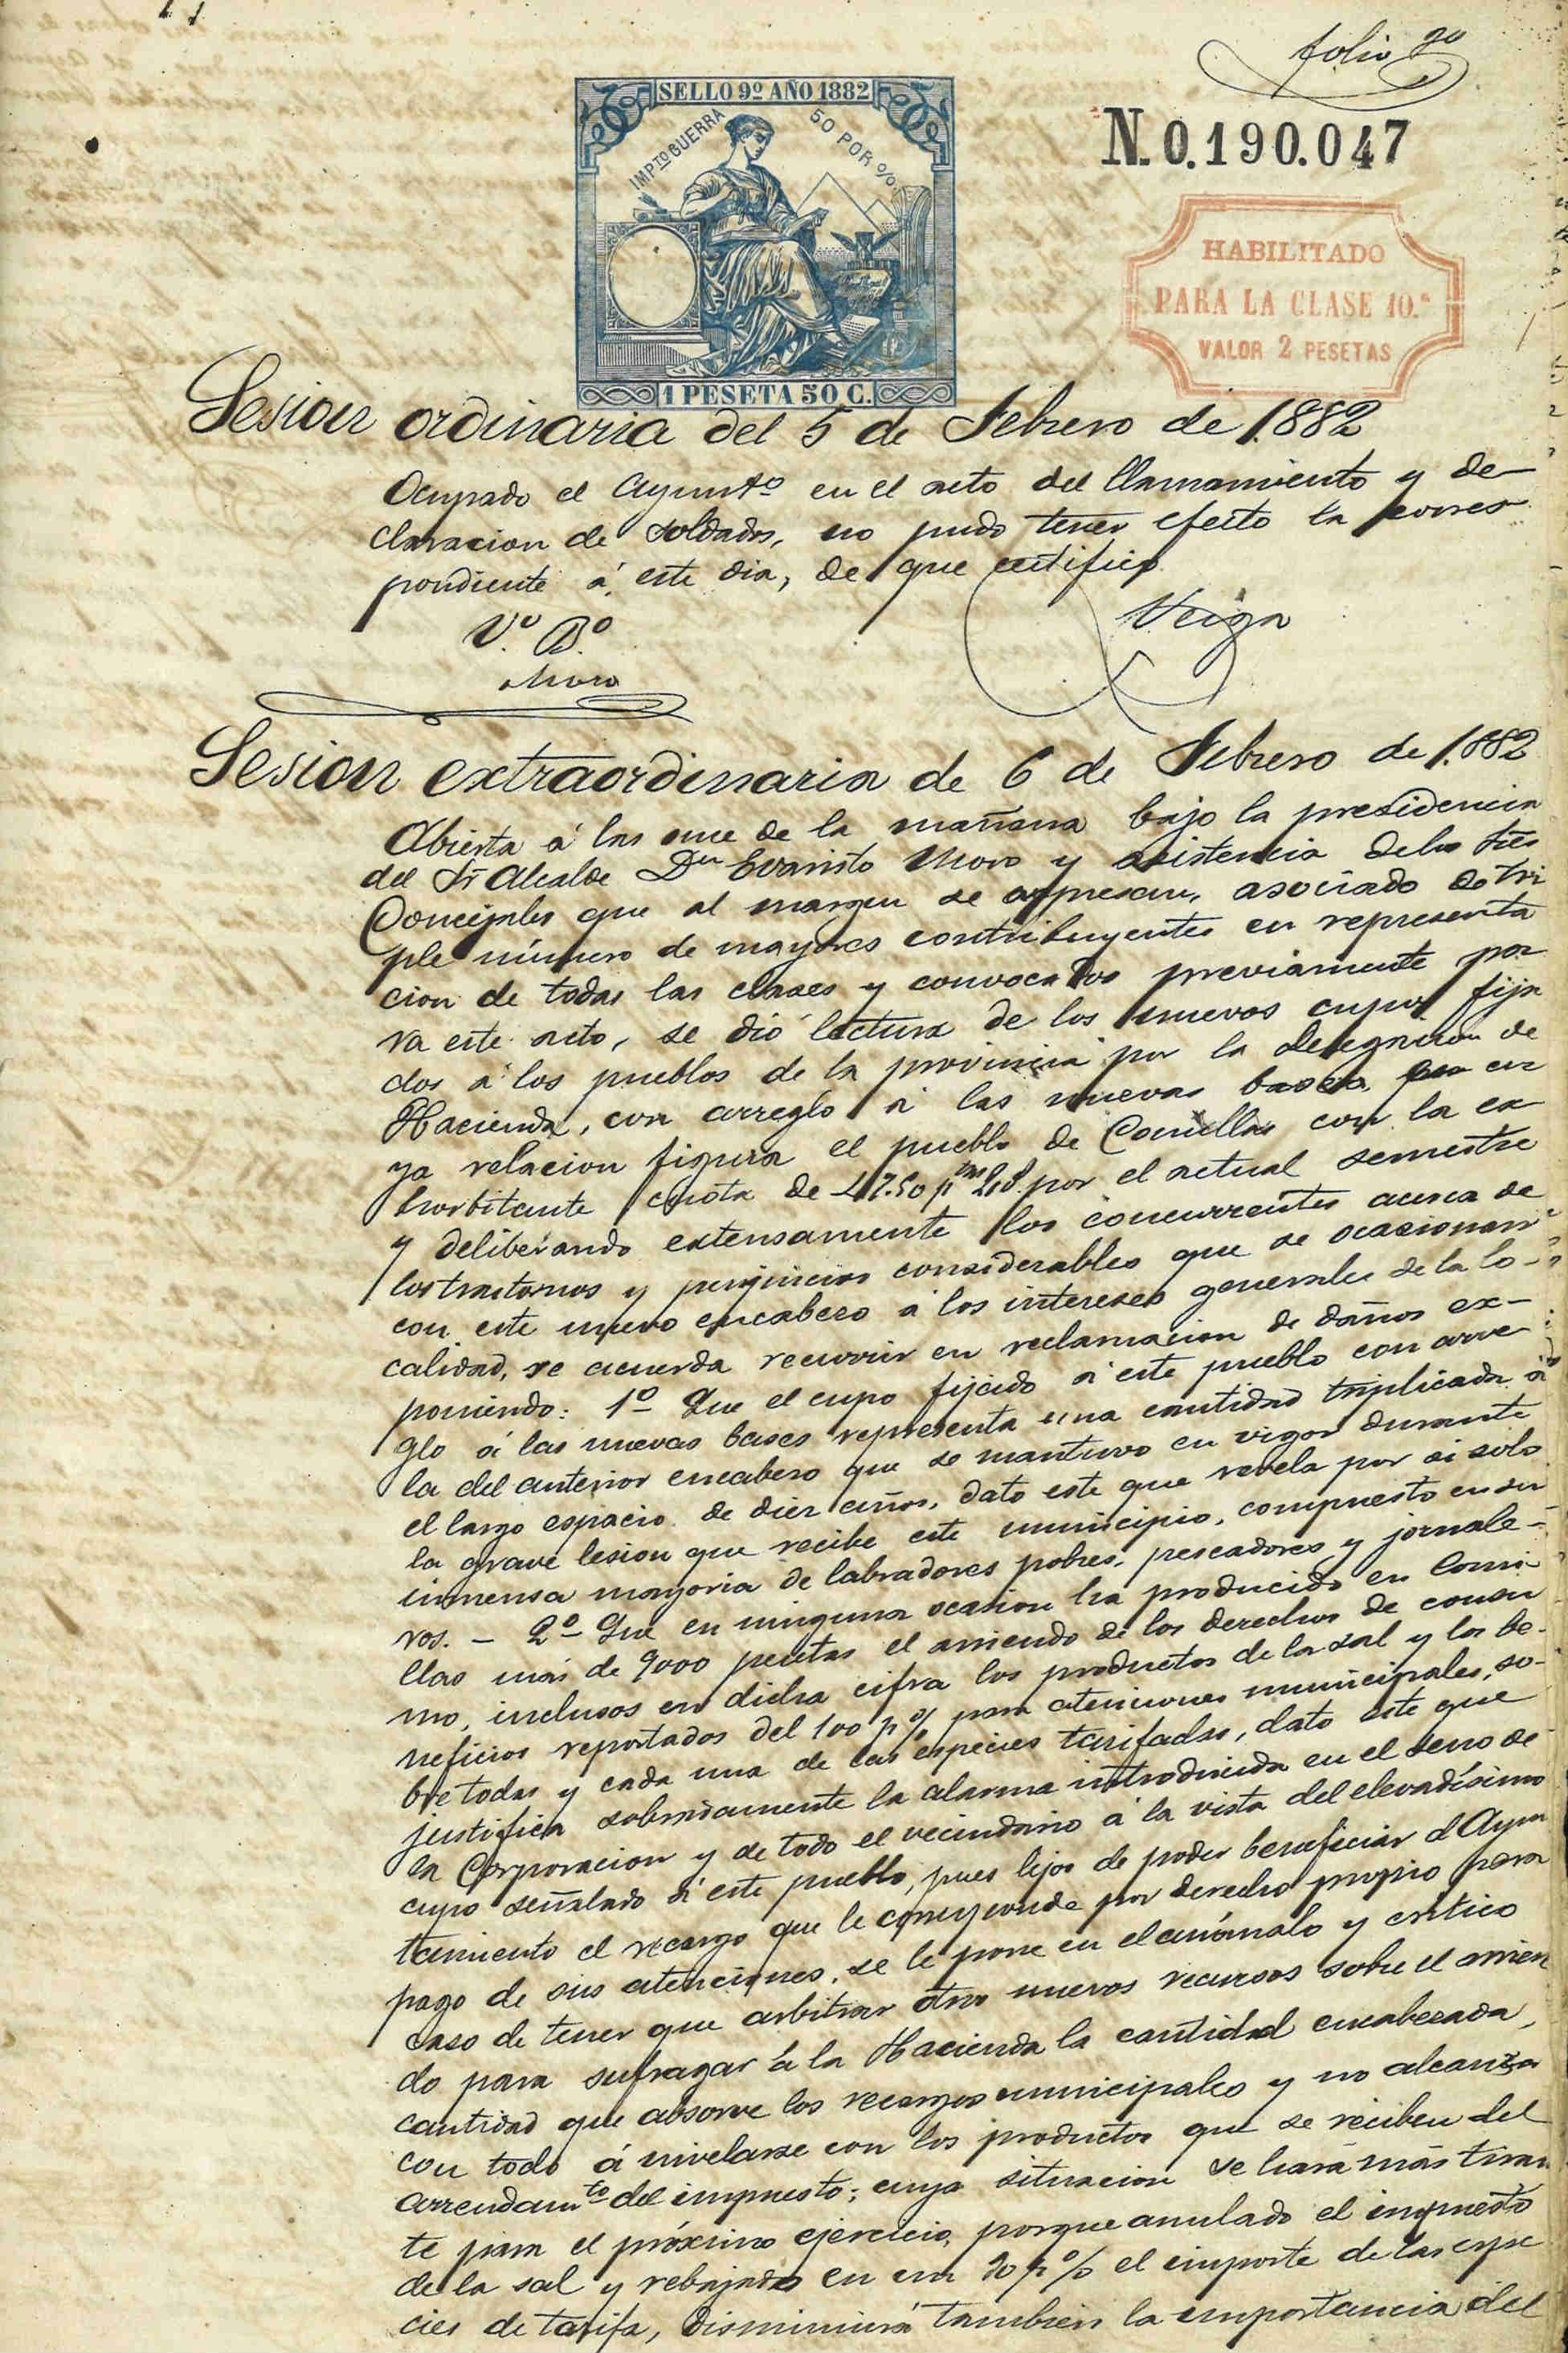 folio 20
SELLO 9º AÑO 1882
IMPTO GUERRA 50 POR %
N. 0.190.047
HABILITADO
PARA LA CLASE 10.ª
VALOR 2 PESETAS
1 PESETA 50 C.
Sesion ordinaria del 5 de Febrero de 1.882
Ocupado el Ayuntº en el acto del llamamiento y de-
claracion de soldados, no pudo tener efecto la corres
pondiente á este dia, de que certifico
Veiga
Vº. Bº.
Moro
Sesion extraordinaria de 6 de Febrero de 1.882
Abierta á las once de la mañana bajo la presidencia
del Sr Alcalde Dn Evaristo Moro y asistencia de los Sres
Concejales que al margen se expresan, asociado de tri
ple número de mayores contribuyentes en representa
cion de todas las clases y convocados previamente pa
ra este acto, se dió lectura de los nuevos cupos fija
dos á los pueblos de la provincia por la Delegacion de
Hacienda, con arreglo á las nuevas bases, en cu
ya relacion figura el pueblo de Comillas con la ex
horbitante cuota de por el actual semestre
y deliberando extensamente los concurrentes acerca de
los trastornos y perjuicios considerables que se ocasionan
con este nuevo encabezo á los intereses generales de la lo-
calidad, se acuerda recurrir en reclamacion de daños ex-
poniendo: 1º Que el cupo fijado á este pueblo con arre
glo á las nuevas bases representa una cantidad triplicada á
la del anterior encabezo que se mantuvo en vigor durante
el largo espacio de diez años, dato este que revela por si solo
la grave lesion que recibe este municipio, compuesto en su
inmensa mayoria de labradores pobres, pescadores y jornale-
ros. - 2º Que en ninguna ocasion ha producido en Comi
llas más de 9000 pesetas el arriendo de los derechos de consu
mo, inclusos en dicha cifra los productos de la sal y los be-
neficios reportados del 100 p% para atenciones municipales, so-
bre todas y cada una de las especies tarifadas, dato este que
justifica sobradamente la alarma introducida en el seno de
la Corporacion y de todo el vecindario á la vista del elevadísimo
cupo señalado á este pueblo, pues lejos de poder beneficiar el Ayun
tamiento el recargo que le corresponde por derecho propio para
pago de sus atenciones, se le pone en el anómalo y crítico
caso de tener que arbitrar otros nuevos recursos sobre el arrien
do para sufragar á la Hacienda la cantidad encabezada,
cantidad que absorve los recargos municipales y no alcanza
con todo á nivelarse con los productos que se reciben del
arrendamto del impuesto; cuya situacion se hará más tiran
te para el próximo ejercicio, porque anulado el impuesto
de la sal y rebajado en un p% el importe de las espe
cies de tarifa, disminuirá tambien la importancia del